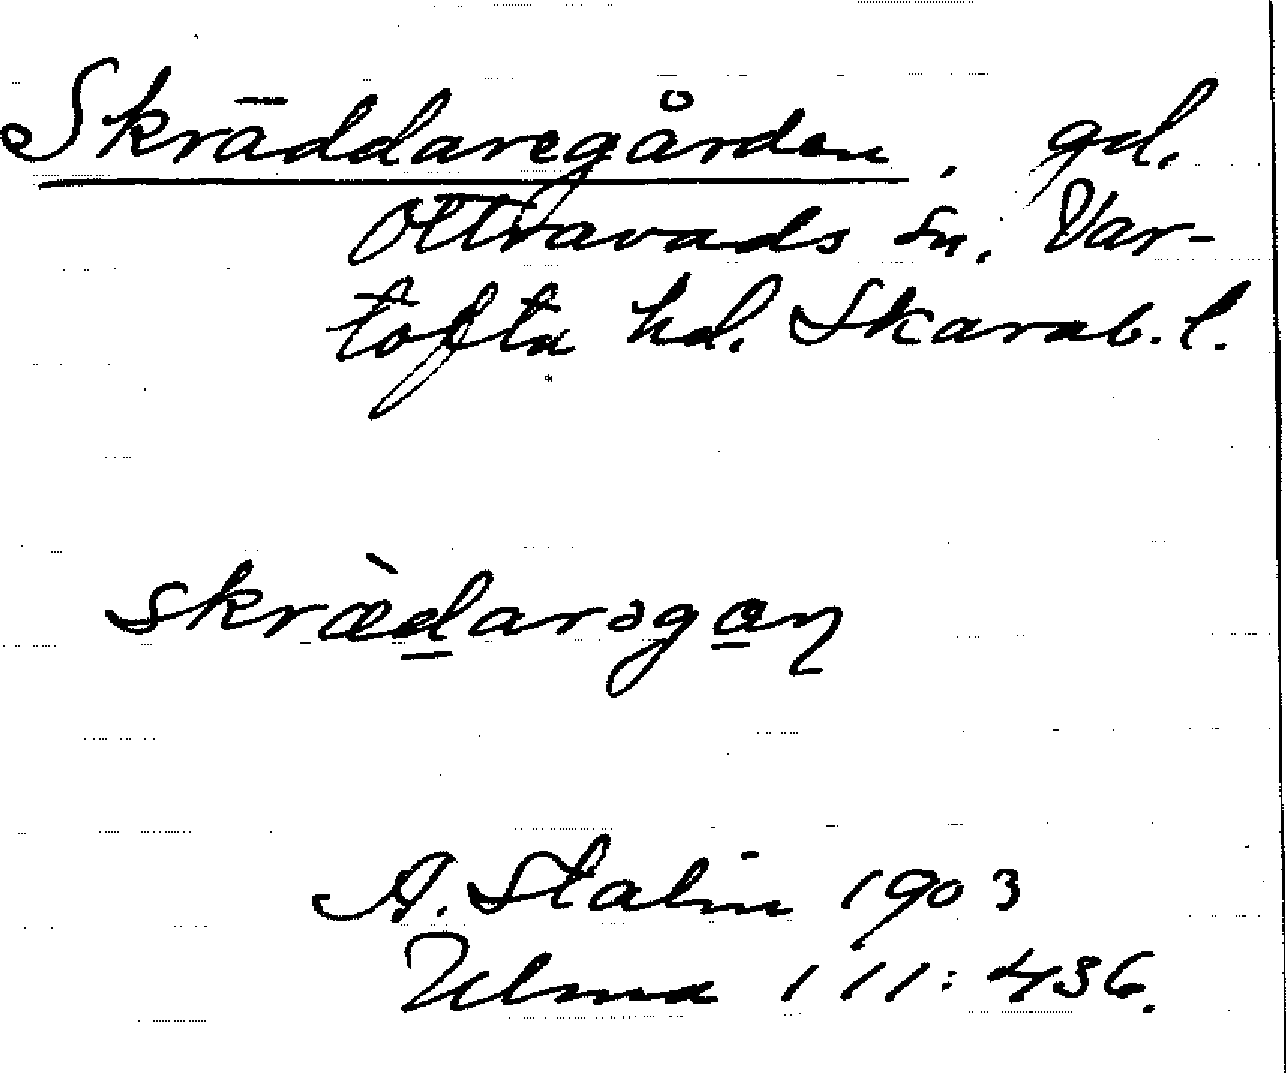 Skräddaregården, gd.
Ottravads sn. Var-
tofta hd. Skarab. l.
skræ̀d̲arəga̲ɳ
A. Stalin 1903
Ulma 111:436.